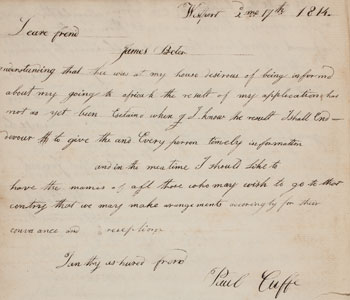 Wesport 2mo 17th 1814.
Deare frend
James Beler
understanding that thee was at my house desirous of being informd
about my going to africah the result of my application has
not as yet been Certain when I know the result I shall End=
devour to give the and Every person timely information
and in the mea time I should like to
have the names of all those who may wish to go to that
contry that we may make arrangements accordingly for their
conveiance and reception
I am thy assured frend
Paul Cuffe